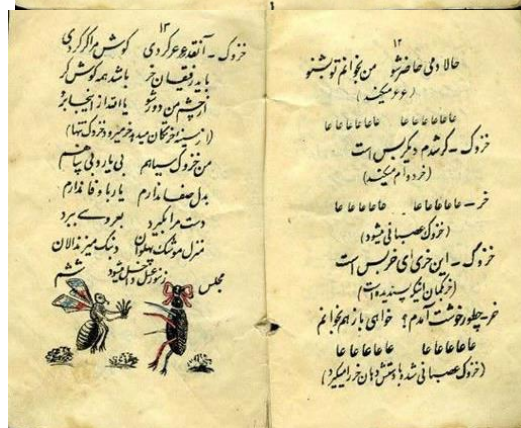 ۱۲
حالا دمی حاضر شو من بخوانم تو بشنو
(عرعر میکند)
عاعاعاعاعا عاعاعاعاعا
خزوک - کر شدم دیگر بس است
(خر دوام میکند)
خر - عاعاعاعاعا عاعاعاعا
(خزوک عصبانی میشود)
خزوک - این خری ای خر بس است
(خر گمان پسندیده است)
خر - چطور خوشت آمدم؟ خواهی باز هم خوانم
عاعاعاعاعا عاعاعاعاعا
(خزوک عصبانی شده با دستش دهان خر را میگیرد)
۱۳
خزوک - آنقدر عرعر کردی گوش مرا کر کردی
باید رفیقان خر باشد همه گوش کر
از چشم من دور شو از اینجا برو
(از خر میرود خزوک تنها)
من خزوک سیاهم بی یار و بی پناهم
بدل صفا ندارم یار با وفا ندارم
دست مرا بگیرد بعروسی ببرد
منزل موشک پهلوان دنبک میزند لالان
مجلس ششم
زنبور عسل داخل میشود